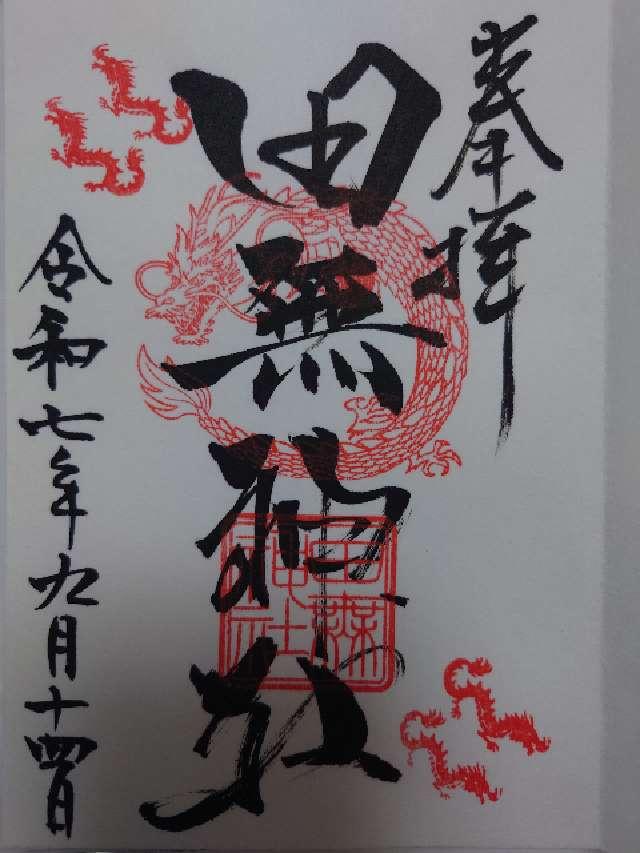 奉拝
田無神社
田無神社
令和七年九月十四日